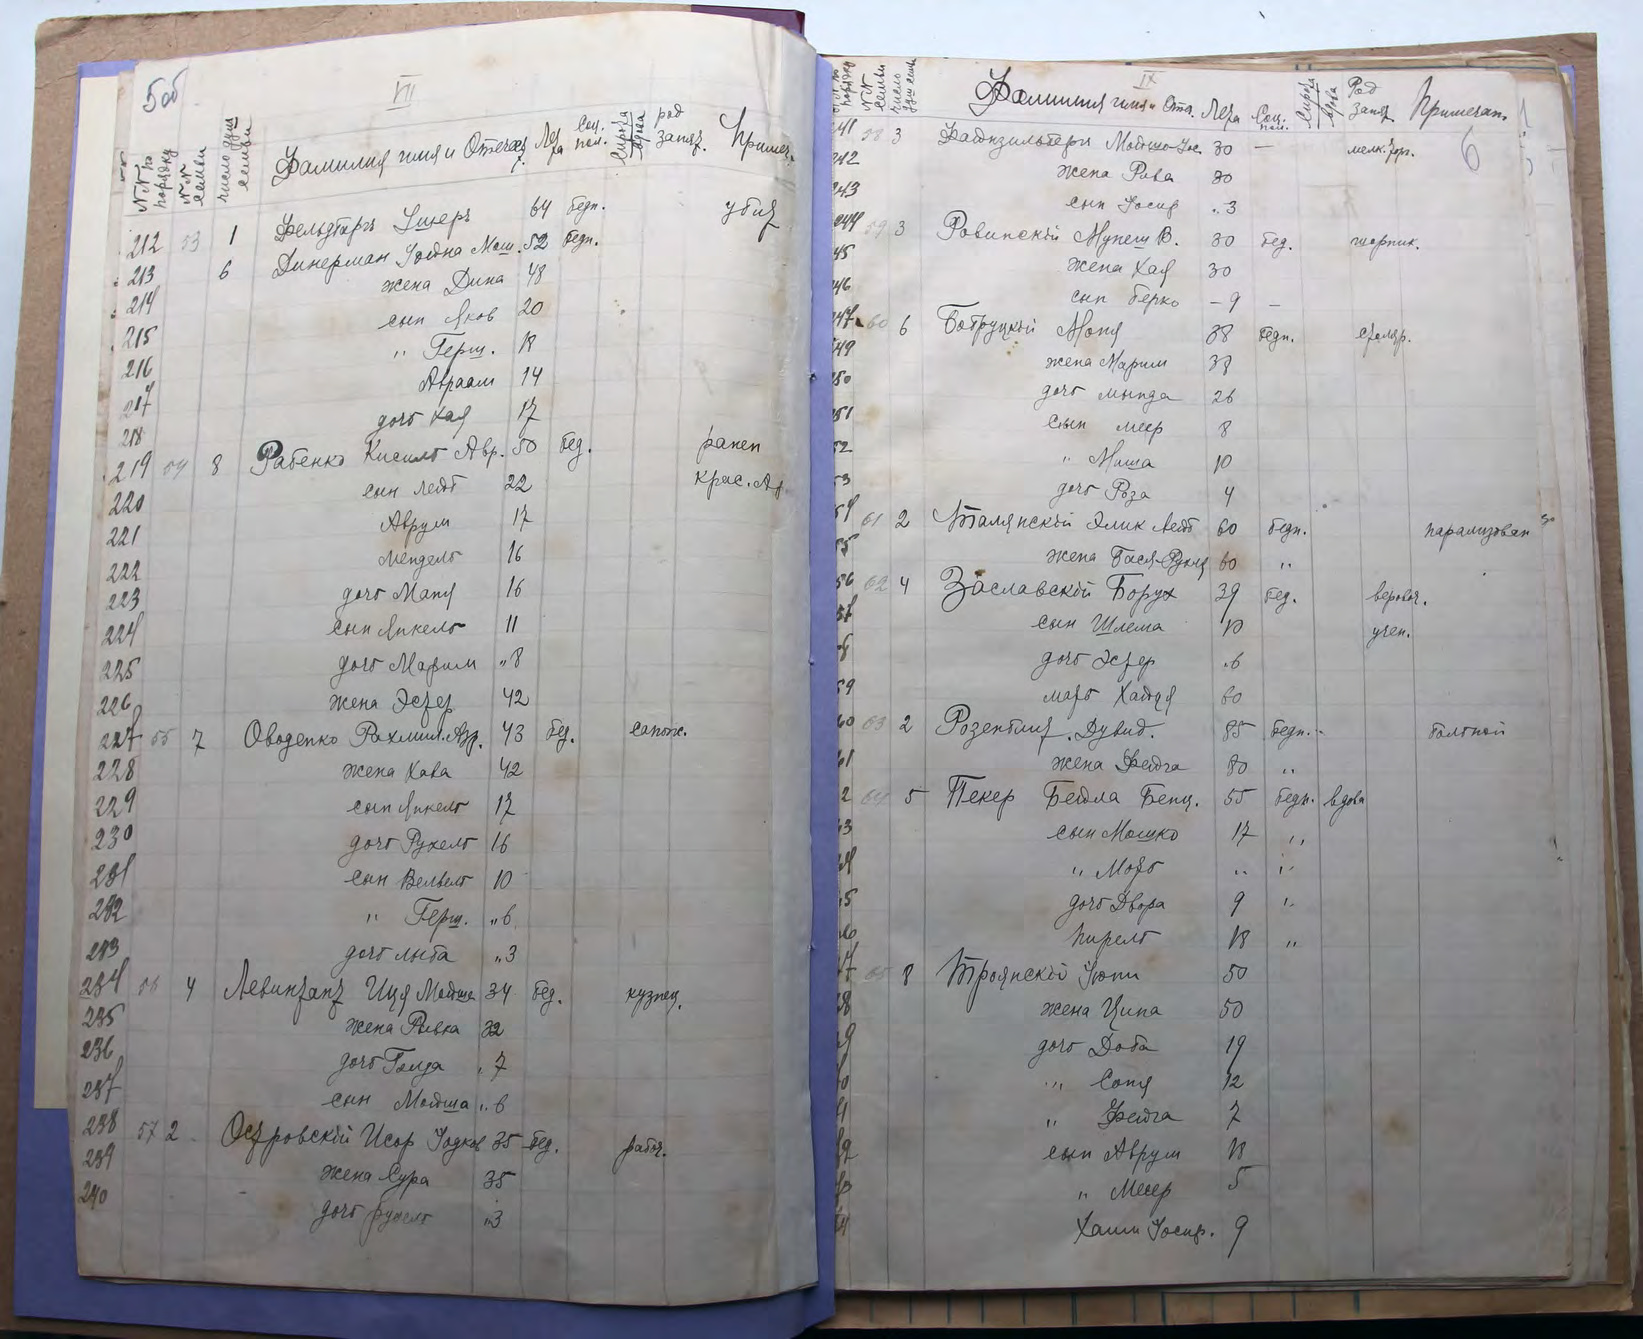 5об
VII
№№ по порядку №№ семьи число душ семьи Фамилия имя и Отчес. Лета Соц. пол. Сирота вдова род занят. Примеч.
212 53 1 Фельдтарг Ушер 64 бедн. убит
213 6 Динерман Иойна Мош. 52 бедн.
214 жена Дина 48
215 сын Яков 20
216 " Герш. 18
217 Авраам 14
218 дочь Хая 17
219 54 8 Рабенко Кисиль Авр. 50 бед. ранен
220 сын Лейб 22 Крас. Ар
221 Аврум 17
222 Мендель 16
223 дочь Маня 16
224 сын Янкель 11
225 дочь Марим " 8
226 жена Эстер 42
227 55 7 Оводенко Рахмил. Авр. 43 бед. сапож.
228 жена Хава 42
229 сын Янкель 17
230 дочь Рухель 16
231 сын Вельвель 10
232 " Герш. " 6
233 дочь Лыба " 3
234 56 4 Левинтант Иця Мойше 34 бед. кузнец.
235 жена Ривка 32
236 дочь Голда " 7
237 сын Мойша " 6
238 57 2 Островский Исор Иодков 35 бед. рабоч.
239 жена Сура 35
240 дочь Рухель " 3
IX
6
порядку №№ семьи число душ семьи Фамилия имя и Отч. Лета Соц. пол. Сирота вдова Род занят. Примечан.
241 58 3 Мойше Иос. 30 — мелк. торг.
242 жена Рива 30
243 сын Иосиф " 3
244 59 3 Ровинский Мунеш В. 30 бед. шорник.
45 жена Хая 30
46 сын Берко – 9 –
47 60 6 Бобруцкий Моня 38 бедн. столяр.
49 жена Марим 38
50 дочь Мында 26
51 сын Меер 8
52 " Миша 10
53 дочь Роза 4
54 61 2 Талянский Элик Лейб 60 бедн. парализован
55 жена Бася-Рухля 60 "
56 62 4 Заславский Борух 39 бед. веровоч.
57 сын Шлема 10 учен.
8 дочь Эстер " 6
59 мать Хайця 60
60 63 2 Розенблит Дувид. 85 бедн. больной
61 жена Фейга 80 "
2 64 5 Пекер Бейла Бенц. 55 бедн. вдова
63 сын Мошко 17 "
64 " Моть " "
65 дочь Двора 9 "
66 Пирель 18 "
67 65 8 Троянский Иоти 50
68 жена Ципа 50
69 дочь Доба 19
70 " Соня 12
71 " Фейга 7
72 сын Аврум 18
73 " Меер 5
74 Хаим Иосиф. 9